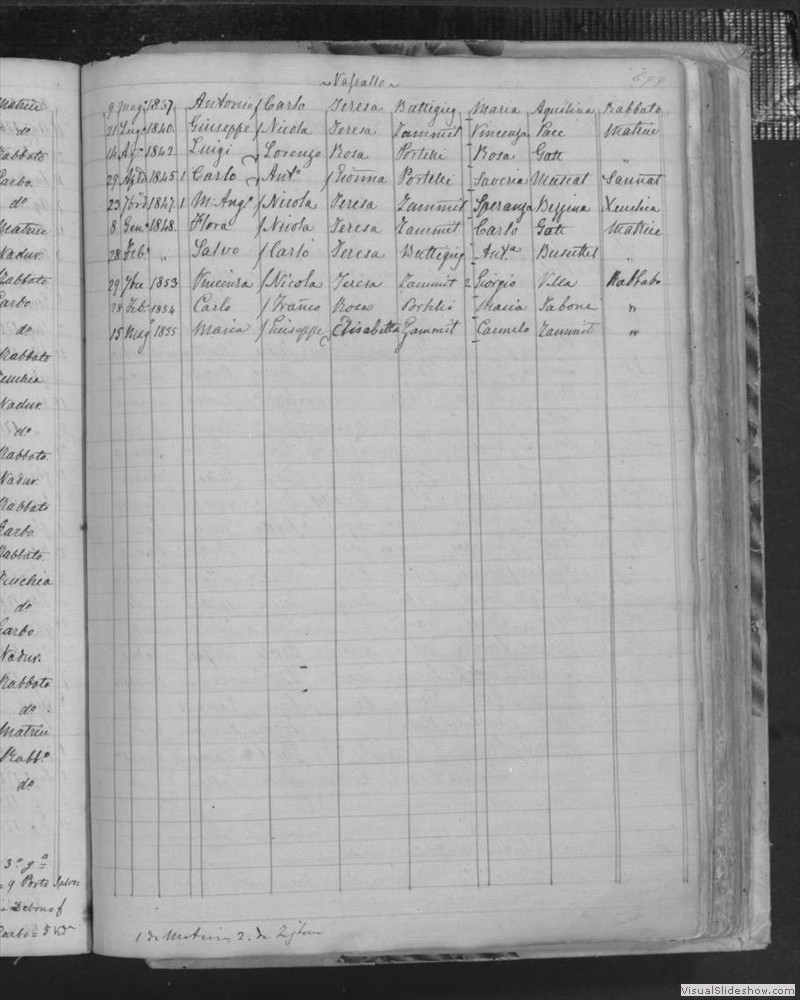 Matrice
do
Rabbato
Garbo
do
Matrice
Nadur
Rabbato
Garbo
do
Rabbato
Xeuchia
Nadur
do
Rabbato
Nadur
Rabbato
Garbo
Rabbato
Xeuchia
do
Garbo
Nadur
Rabbato
do
Matrice
Rabbo
do
9 Porto
Debono f
Vassallo
9 Mago 1837 Antonio f Carlo Teresa Buttigieg Maria Aquilina Rabbato
21 Lugo 1840 Giuseppe f Nicola Teresa Zammit Vincenza Pace Matrice
14 1842 Luigi Lorenzo Rosa Portelli Rosa Gatt "
29 1845 1 Carlo Anto Portelli Saveria Muscat Sannat
23 1847 1 M. Ango f Nicola Teresa Zammit Speranza Bezzina Xeuchia
8 Geno 1848 Flora f Nicola Teresa Zammit Carlo Gatt Matrice
28 Febo " Salvo f Carlo Teresa Buttigieg Anta Busuttil "
29 7bre 1853 Vincenza f Nicola Teresa Zammit 2 Giorgio Vella Rabbato
28 Febo 1854 Carlo f Franco Rosa Portelli Maria Tabone "
15 Mago 1855 Maria f Giuseppe Elisabetta Zammit Carmelo Zammit "
VisualSlideshow.com